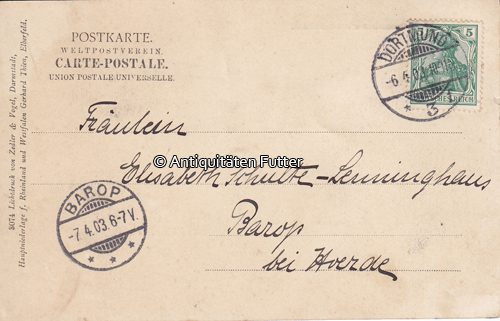 POSTKARTE.
WELTPOSTVEREIN.
CARTE-POSTALE.
UNION POSTALE UNIVERSELLE.
DORTMUND
-6.4.03
* 3
5
REICH
Fräulein
© Antiquitäten Futter
Elisabeth Schulte-Lenninghaus
Barop
bei Hoerde
BAROP
-7.4.03.6-7V.
* * *
3674 Lichtdruck von Zedler & Vogel, Darmstadt,
Hauptniederlage f. Rheinland und Westfalen Gerhard Thien, Elberfeld.